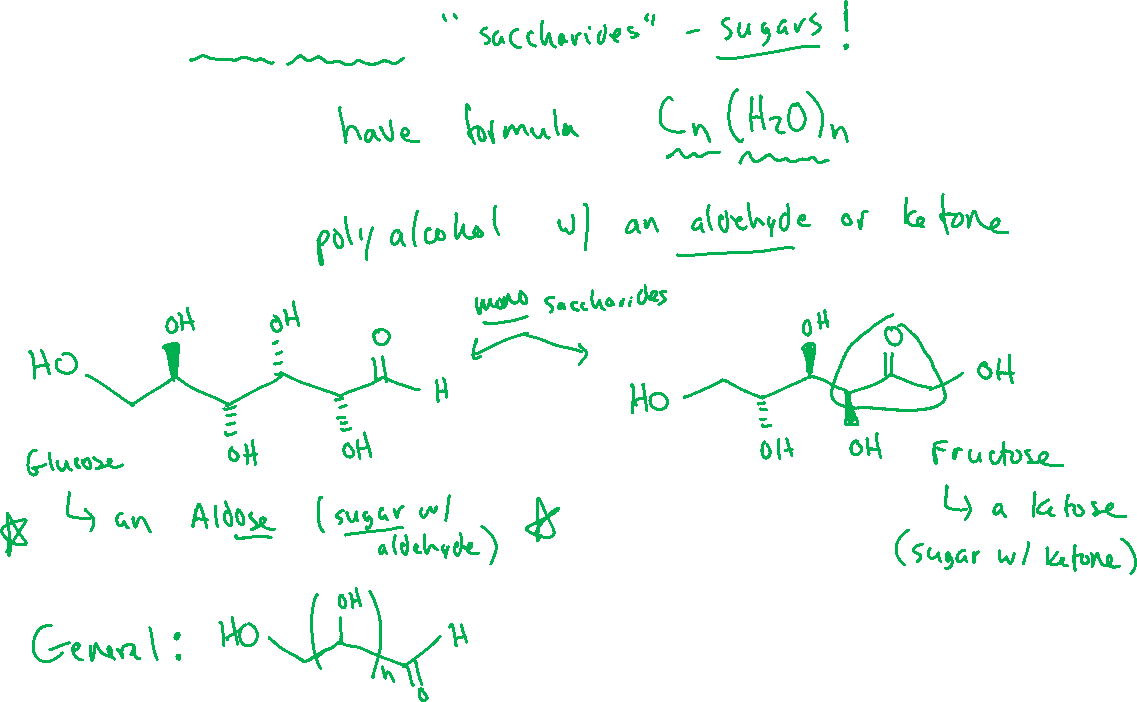 "saccharides" - sugars!
have formula Cn(H2O)n
polyalcohol w/ an aldehyde or ketone
mono saccharides
HO OH OH OH OH O H
HO OH OH OH O OH
Glucose
↳ an Aldose (sugar w/ aldehyde)
Fructose
↳ a ketose
(sugar w/ ketone)
General: HO (OH)n O H